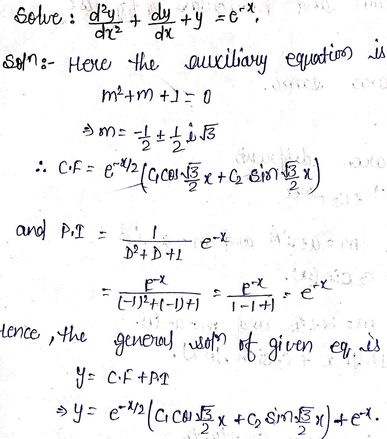 Solve : d²y/dx² + dy/dx + y = e^-x.
Solⁿ:- Here the auxiliary equation is
m²+m+1=0
⇒ m = -1/2 ± 1/2 i√3
∴ C.F = e^-x/2 (C₁ cos √3/2 x + C₂ sin √3/2 x)
and P.I = 1/(D²+D+1) e^-x
= e^-x/((-1)²+(-1)+1) = e^-x/(1-1+1) = e^-x
Hence, the general solⁿ of given eq. is
y = C.F + P.I
⇒ y = e^-x/2 (C₁ cos √3/2 x + C₂ sin √3/2 x) + e^-x.